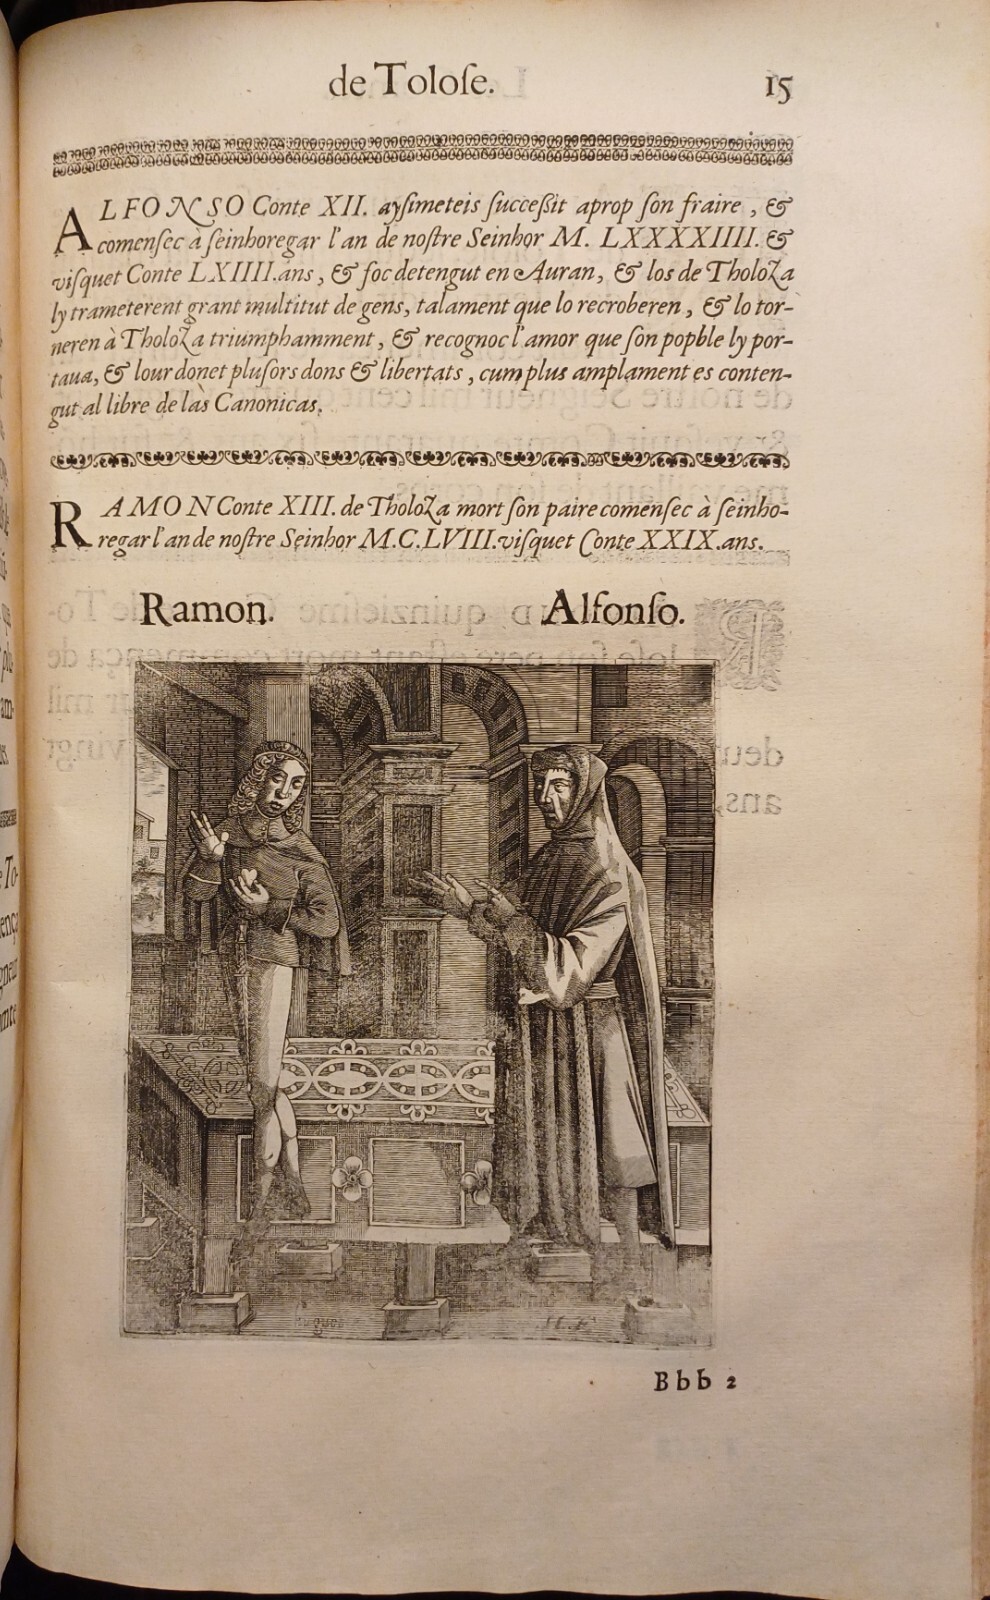 de Toloſe.
15
ALFONSO Conte XII. ayſimeteis ſucceßit aprop ſon fraire, &
comenſec à ſeinhoregar l'an de noſtre Seinhor M. LXXXXIIII. &
viſquet Conte LXIIII. ans, & foc detengut en Auran, & los de Tholoza
ly trameterent grant multitut de gens, talament que lo recroberen, & lo tor-
neren à Tholoza triumphamment, & recognoc l'amor que ſon popble ly por-
taua, & lour donet pluſors dons & libertats, cum plus amplament es conten-
gut al libre de làs Canonicas.
RAMON Conte XIII. de Tholoza mort ſon paire comenſec à ſeinho-
regar l'an de noſtre Seinhor M.C.LVIII. viſquet Conte XXIX. ans.
Ramon. Alfonſo.
Bbb 2